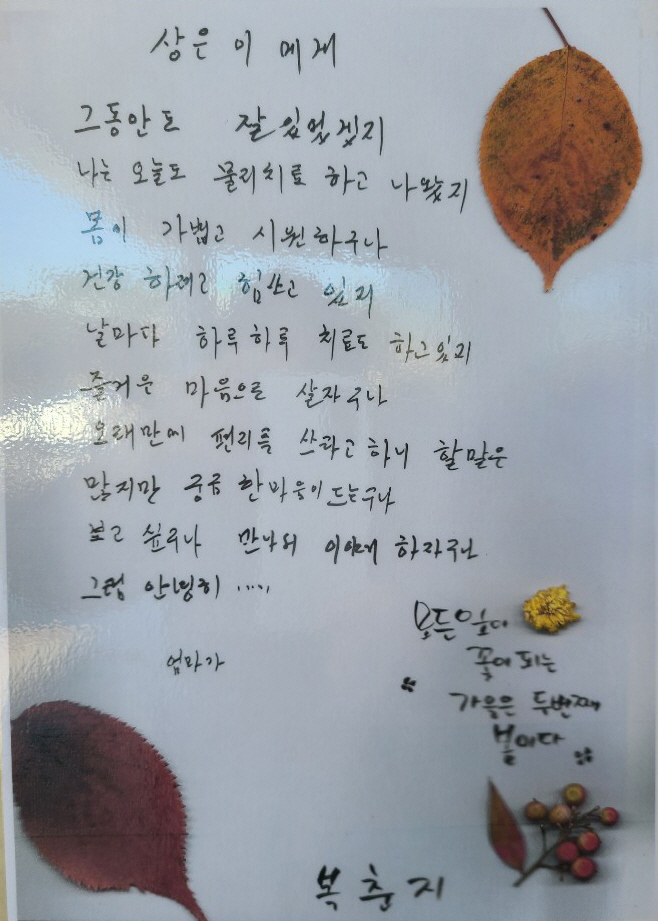 상은이 에게
그동안도 잘 있었겠지
나는 오늘도 물리치료 하고 나왔지
몸이 가볍고 시원하구나
건강 하려고 힘쓰고 있지
날마다 하루하루 치료도 하고있지
즐거운 마음으로 살자구나
오래만에 편리를 쓰라고 하니 할말은
많지만 궁금한마음이 드는구나
보고 싶구나 만나서 이야기 하자구나
그럼 안녕히 .....
엄마가
모든잎이
꽃이 되는
가을은 두번째
봄이다
복춘지